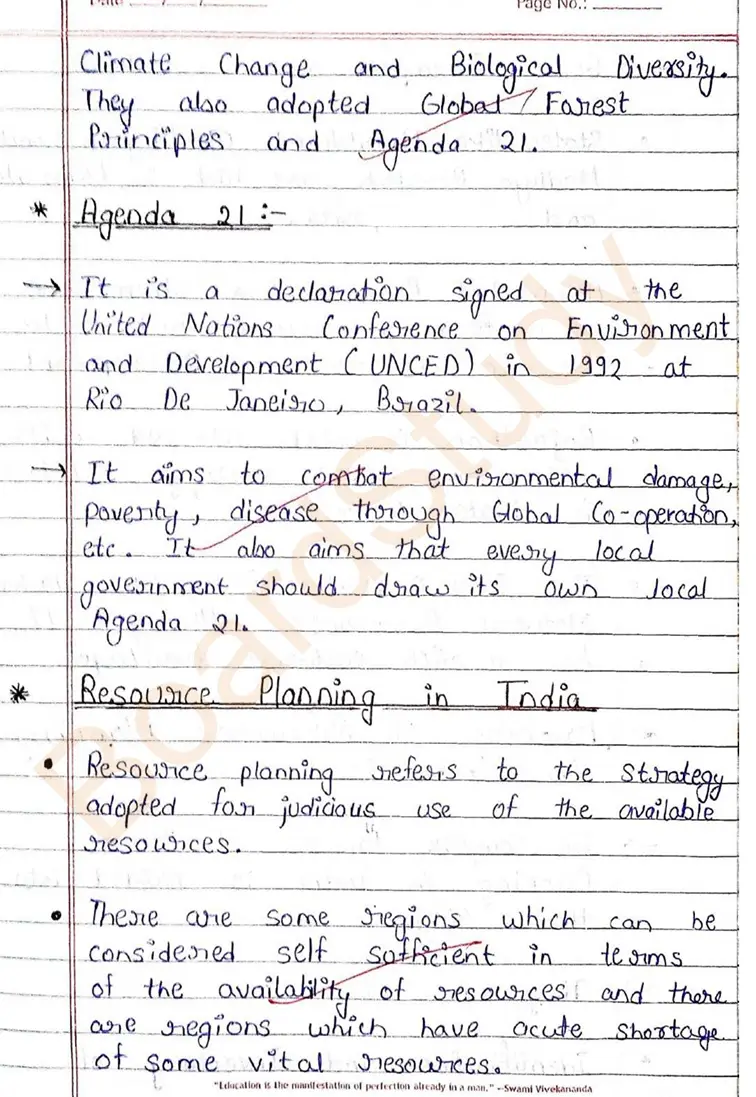 Page No.:
Climate Change and Biological Diversity.
They also adopted Global Forest
Principles and Agenda 21.
* Agenda 21 :-
→ It is a declaration signed at the
United Nations Conference on Environment
and Development (UNCED) in 1992 at
Rio De Janeiro, Brazil.
→ It aims to combat environmental damage,
poverty, disease through Global Co-operation,
etc. It also aims that every local
government should draw its own local
Agenda 21.
* Resource Planning in India
• Resource planning refers to the strategy
adopted for judicious use of the available
resources.
• There are some regions which can be
considered self sufficient in terms
of the availability of resources and there
are regions which have acute shortage
of some vital resources.
"Education is the manifestation of perfection already in a man." -Swami Vivekananda
BoardStudy